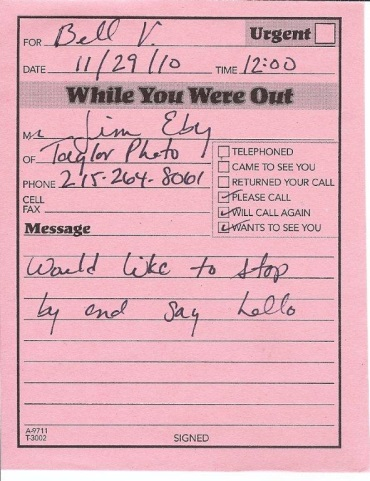 FOR Bell V. Urgent
DATE 11/29/10 TIME 12:00
While You Were Out
Mr Jim Eby
OF Taylor Photo
PHONE 215-264-8061
CELL
FAX
TELEPHONED
CAME TO SEE YOU
RETURNED YOUR CALL
PLEASE CALL
WILL CALL AGAIN
WANTS TO SEE YOU
Message
Would like to stop
by and say hello
A-9711
T-3002
SIGNED